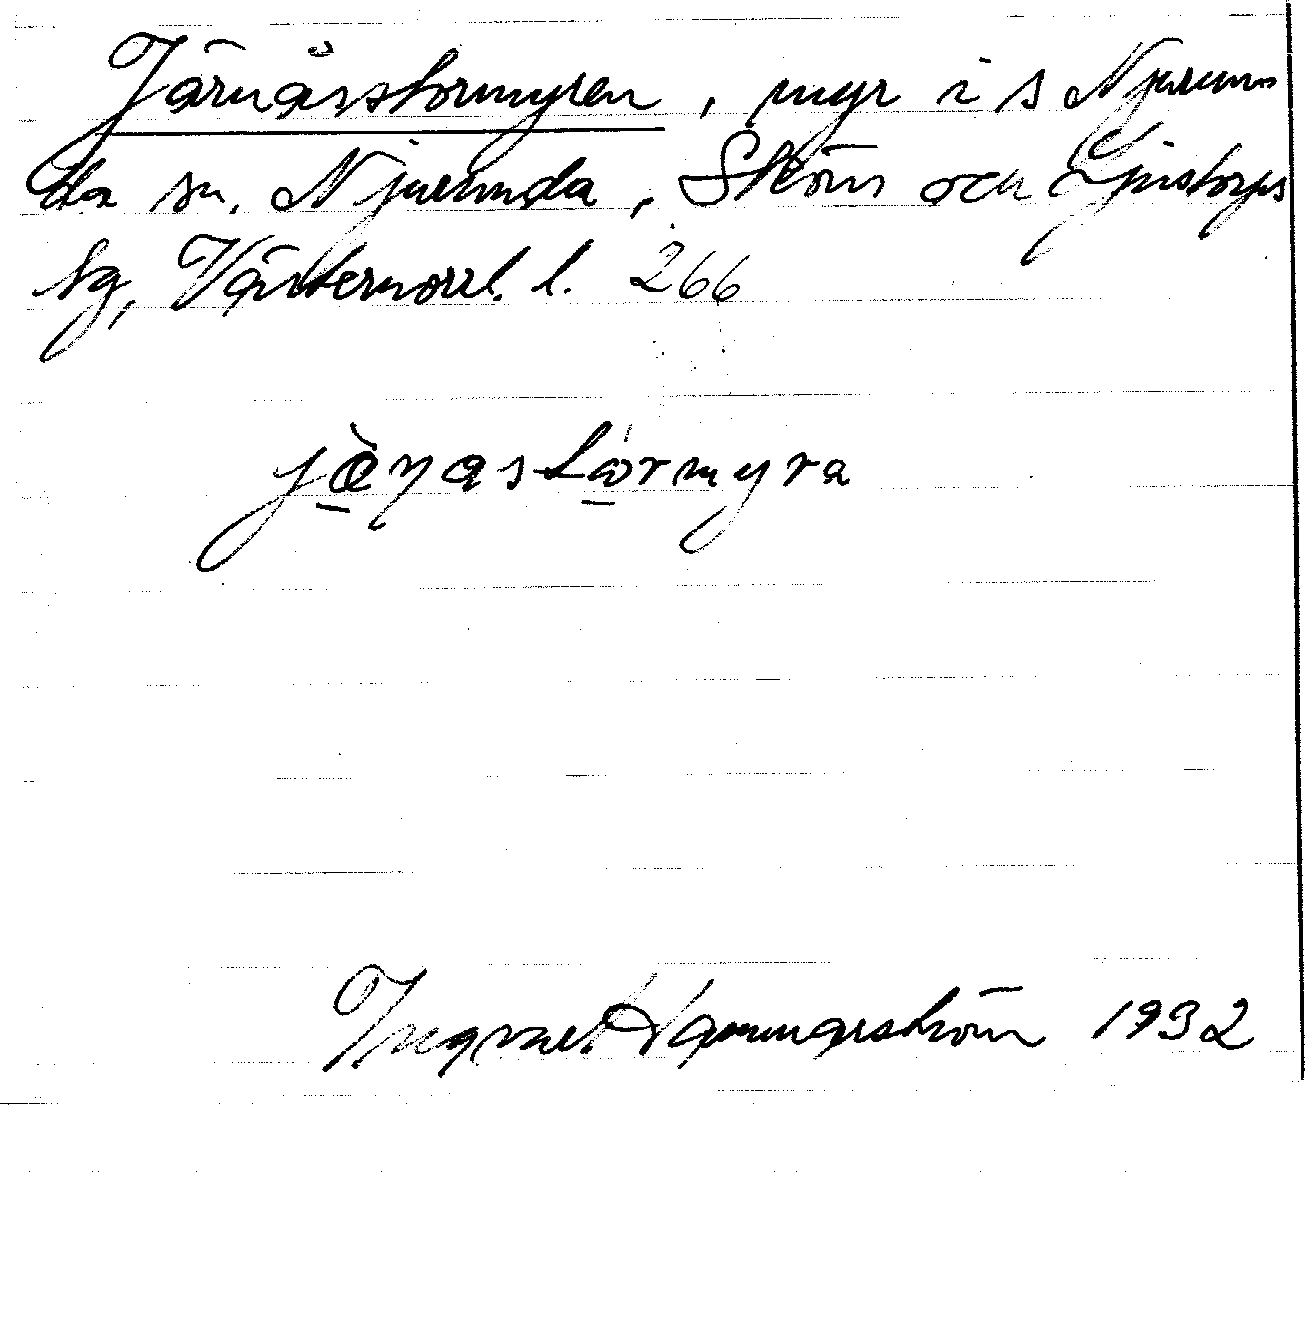 Järnåsstormyren, myr i s Njurun-
da sn. Njurunda, Sköns och Ljustorps
tg, Västernorrl. l. 266
Ingvar Hammarström 1932